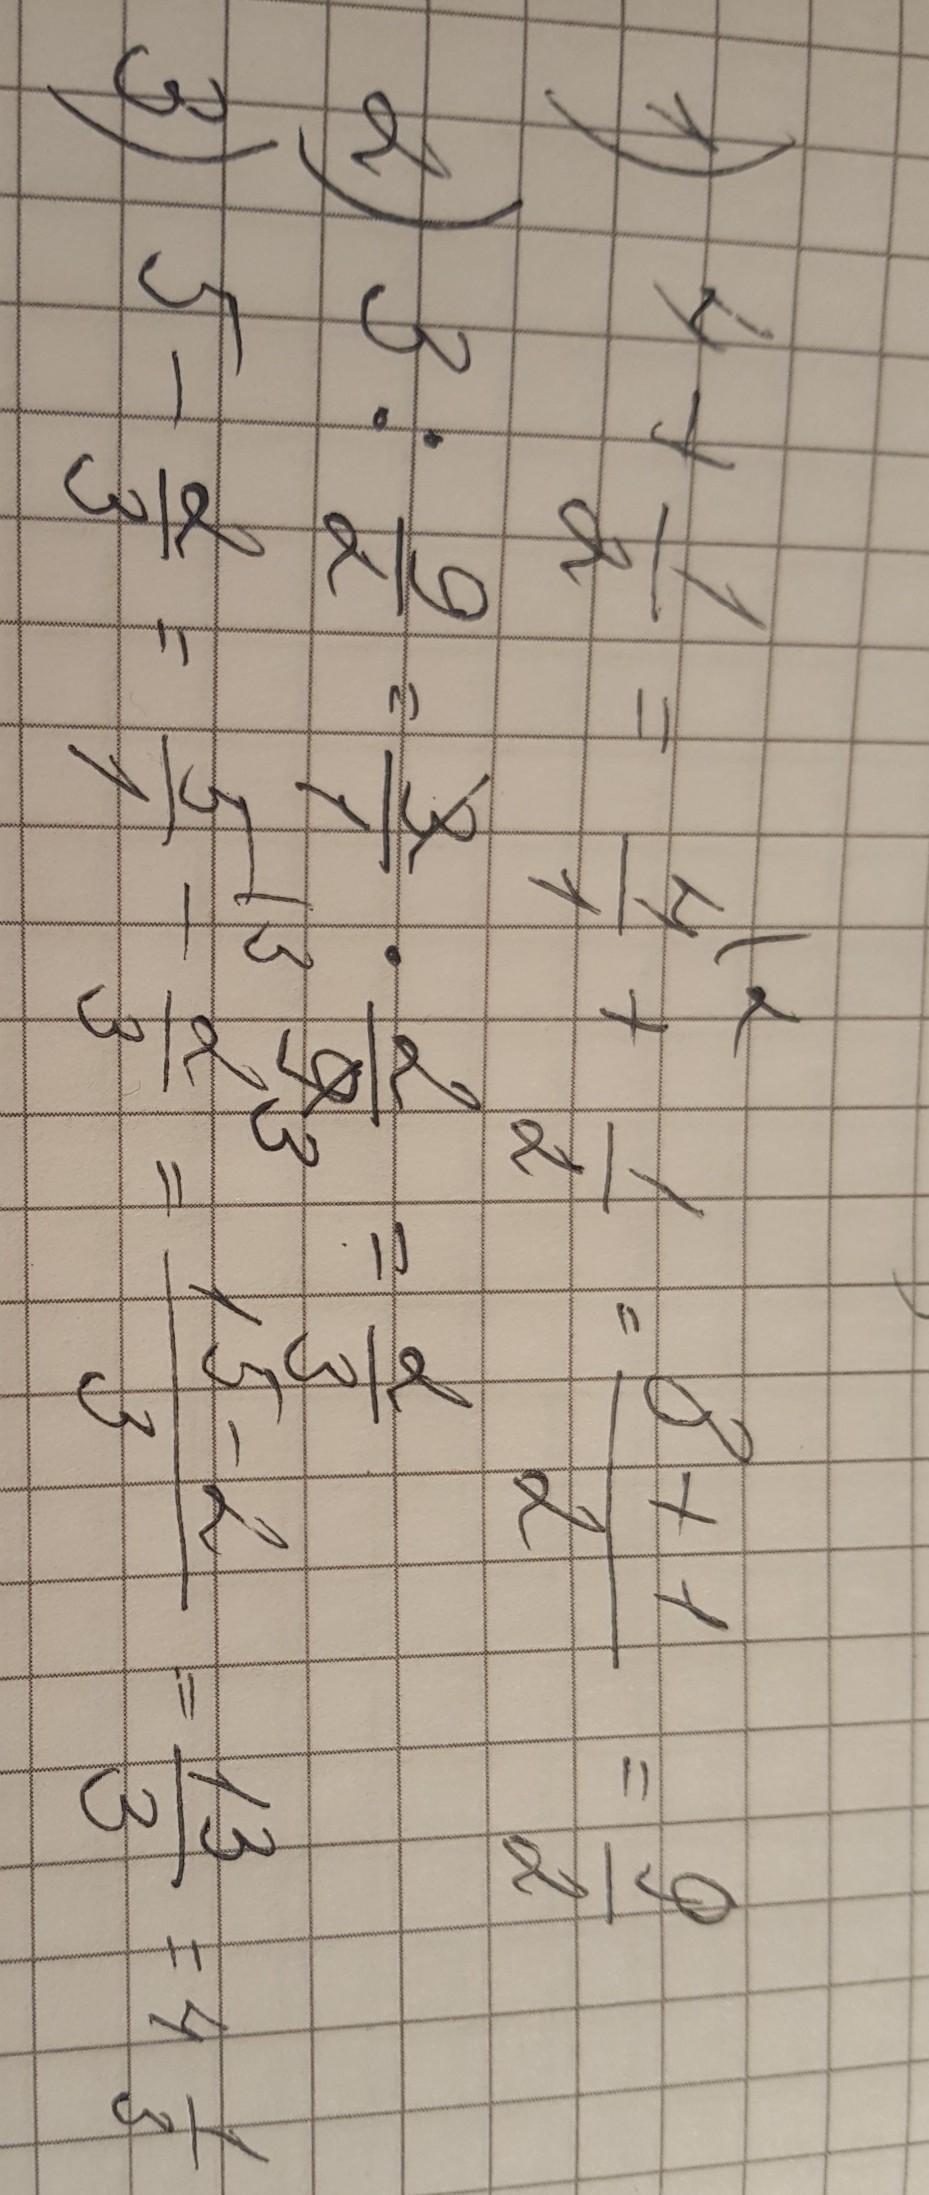 1) 4 + 1/2 = 4/1 \2 + 1/2 = 8+1/2 = 9/2
2) 3 : 9/2 = 3/1 · 2/9 3 = 2/3
3) 5 - 2/3 = 5/1 \3 - 2/3 = 15-2/3 = 13/3 = 4 1/3